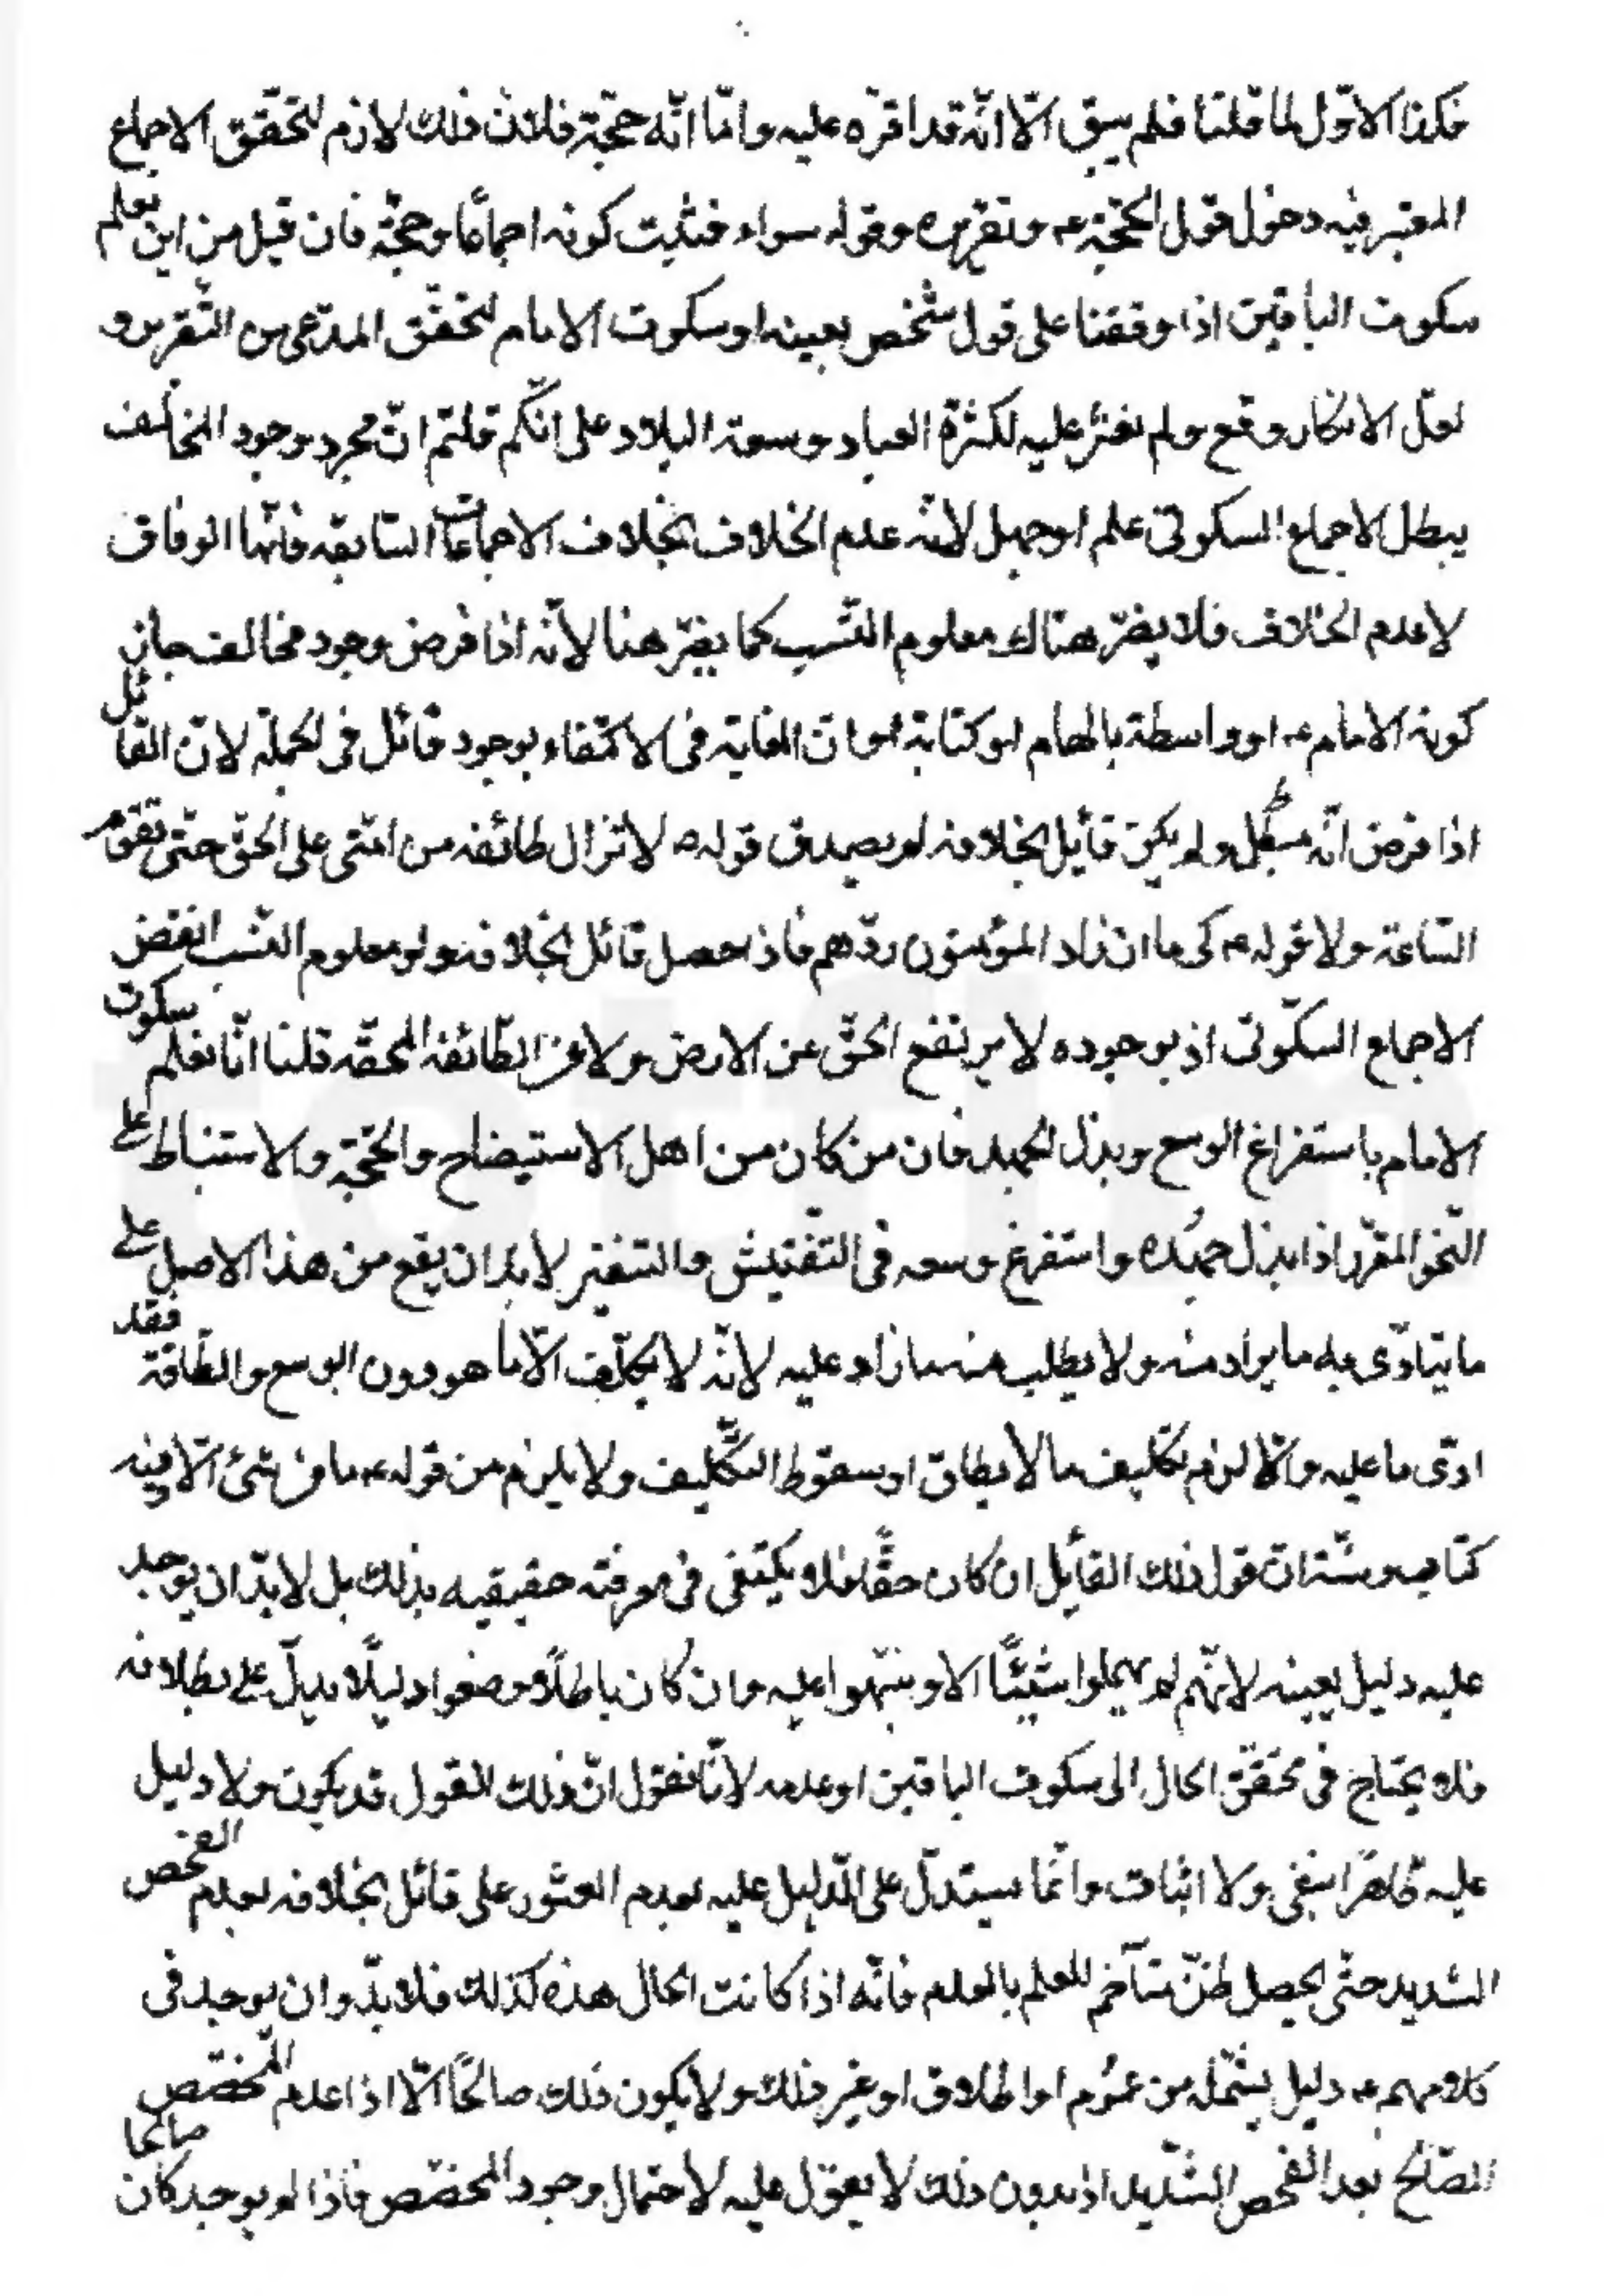 فكذا الاوّل لما قلنا فلم يبق الّا انّه قد اقرّه عليه وامّا انّه حجّة فلانّ ذلك لازم لتحقّق الاجماع
المعتبر فيه دخول قول الحجّة ع وتقريره وقوله سواء فثبت كونه اجماعًا وحجّة فان قيل من اين يعلم
سكوت الباقين اذا وقفنا على قول شخص بعينه او سكوت الامام لتحقّق المدّعى من التّقرير و
لعلّ الانكار وقع ولم نعثر عليه لكثرة العباد وسعة البلاد على انّكم قلتم انّ مجرد وجود المخالف
يبطل الاجماع السكوتى علم او جهل لانّه عدم الخلاف بخلاف الاجماعات السّابقه فانّها الوفاق
لا عدم الخلاف فلا يضرّ هناك معلوم النّسب كما يضرّ هنا لانّه اذا فرض وجود مخالف جاز
كونه الامام ع او واسطة بالهام او كتابة او انّ الغاية فى الاكتفاء بوجود قائل فى الجملة لانّ القائل
اذا فرض انّه مبطل ولم يكن قائل بخلافه لم يصدق قوله ص لا تزال طائفه من امّتى على الحقّ حتّى تقوم
السّاعة ولا قوله ع كى ما ان زاد المؤمنون ردّهم فاذا حصل قائل بخلافه ولو معلوم النّسب انتقض
الاجماع السكّوتى اذ بوجوده لا يرتفع الحقّ عن الارض ولا من الطّائفه المحقّه قلنا انّا نعلم سكوت
الامام باستفراغ الوسع وبذل الجهد فان من كان من اهل الاستيضاح والحجّة والاستنباط على
النّحو المقرّر اذا بذل جهده واستفرغ وسعه فى التّفتيش والتنقير لا بد ان يقع من هذا الاصل على
ما يتادّى به ما يراد منه ولا يطلب منه ما زاد عليه لانّه لا يكلّف الّا ما هو دون الوسع والطّاقة فقد
ادّى ما عليه والّا لزم تكليف ما لا يطاق او سقوط التّكليف ولا يلزم من قوله ع ما من شئ الّا وفيه
كتاب وسنّة انّ قول ذلك القائل ان كان حقًّا فلا يكتفى فى معرفة حقيقيه بذلك بل لا بدّ ان يوجد
عليه دليل بعينه لانّهم لم يهملوا شيئًا الا ونبّهوا عليه وان كان باطلًا وضعوا دليلًا يدلّ على بطلانه
فلا يحتاج فى تحقّق الحال الى سكوت الباقين او عدمه لانّا نقول انّ ذلك القول قد يكون ولا دليل
عليه ظاهرًا بنفى ولا اثبات وانّما يستدلّ على الدّليل عليه بعدم العثور على قائل بخلافه بعدم الفحص
الشديد حتّى يحصل ظنّ متآخم للعلم بالعدم فانّه اذا كانت الحال هذه كذلك فلا بدّ وان يوجد فى
كلامهم ع دليل يشمله من عموم او اطلاق او غير ذلك ولا يكون ذلك صالحًا الّا اذا عدم المخصّص
الصّالح بعد الفحص الشّديد اذ بدون ذلك لا يعوّل عليه لاحتمال وجود المخصّص فاذا لم يوجد كان صالحا